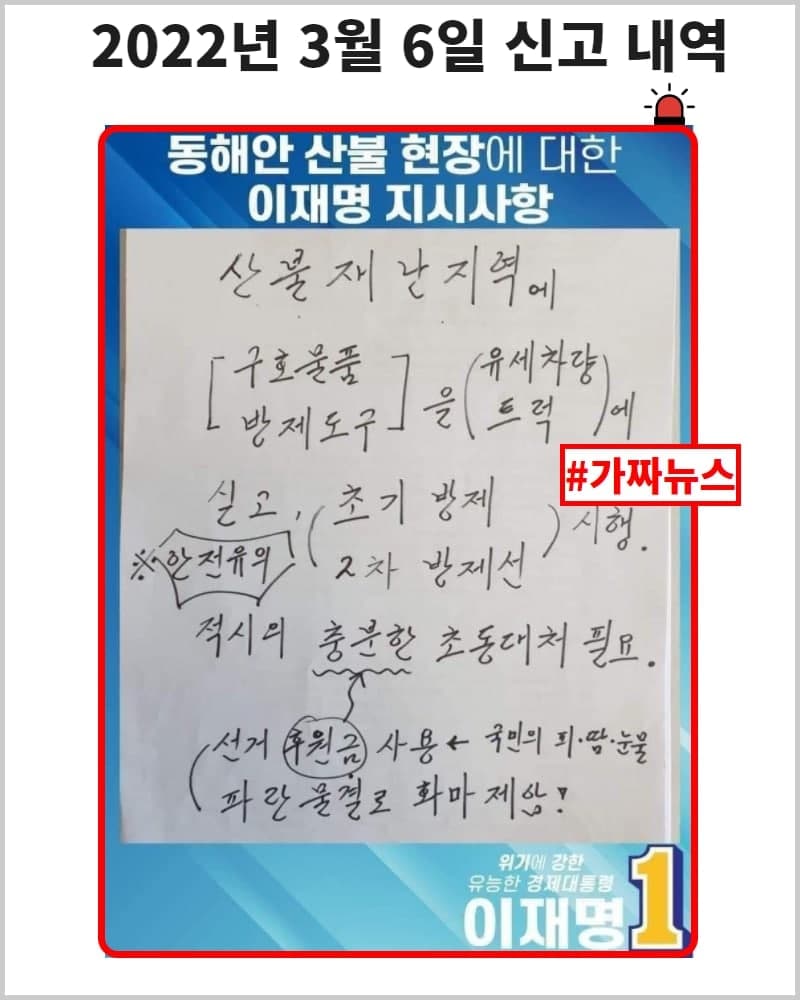 2022년 3월 6일 신고 내역
동해안 산불 현장에 대한
이재명 지시사항
산불재난지역에
[구호물품 방제도구]을 (유세차량 트럭)에
#가짜뉴스
실고, (초기 방제 2차 방제선) 시행.
※안전유의
적시의 충분한 초동대처 필요.
(선거 후원금 사용 ← 국민의 피·땀·눈물
파란물결로 화마제압!
위기에 강한
유능한 경제대통령
이재명 1